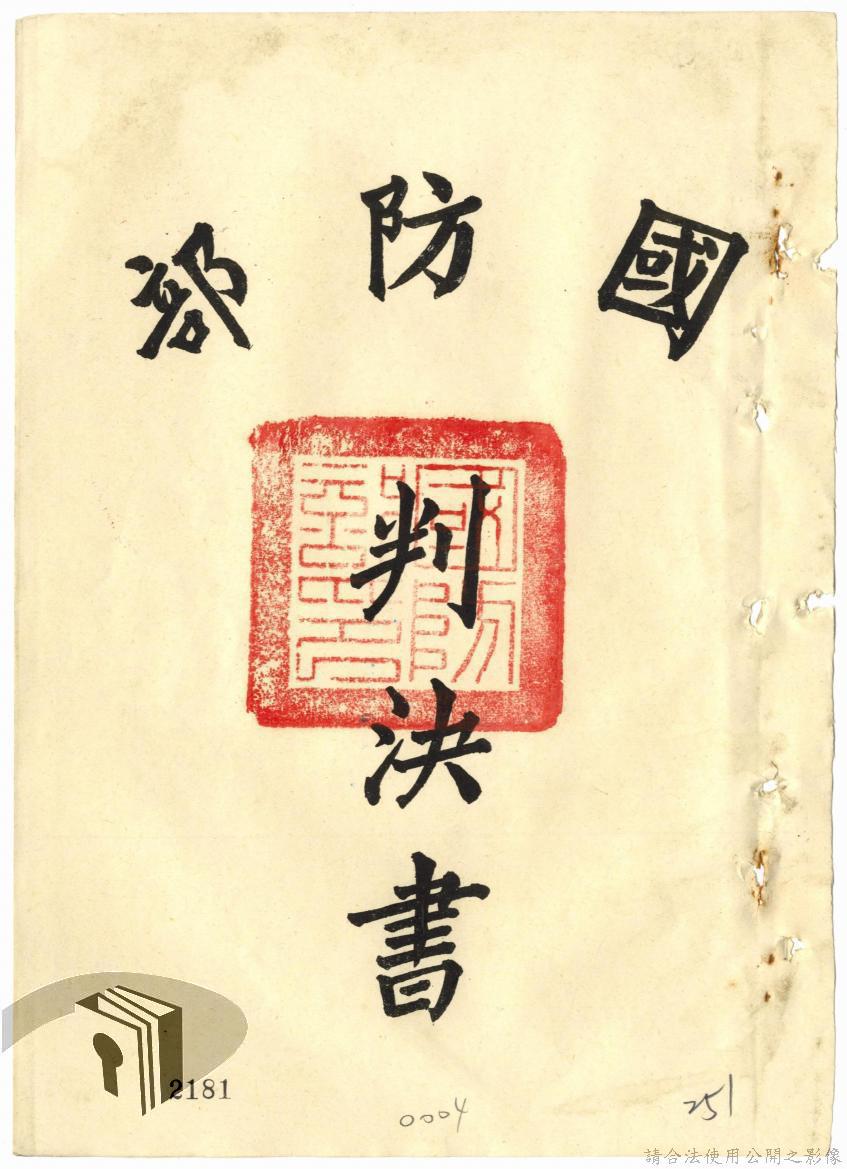 國防部
國防部印
判決書
2181
0004
251
請合法使用公開之影像